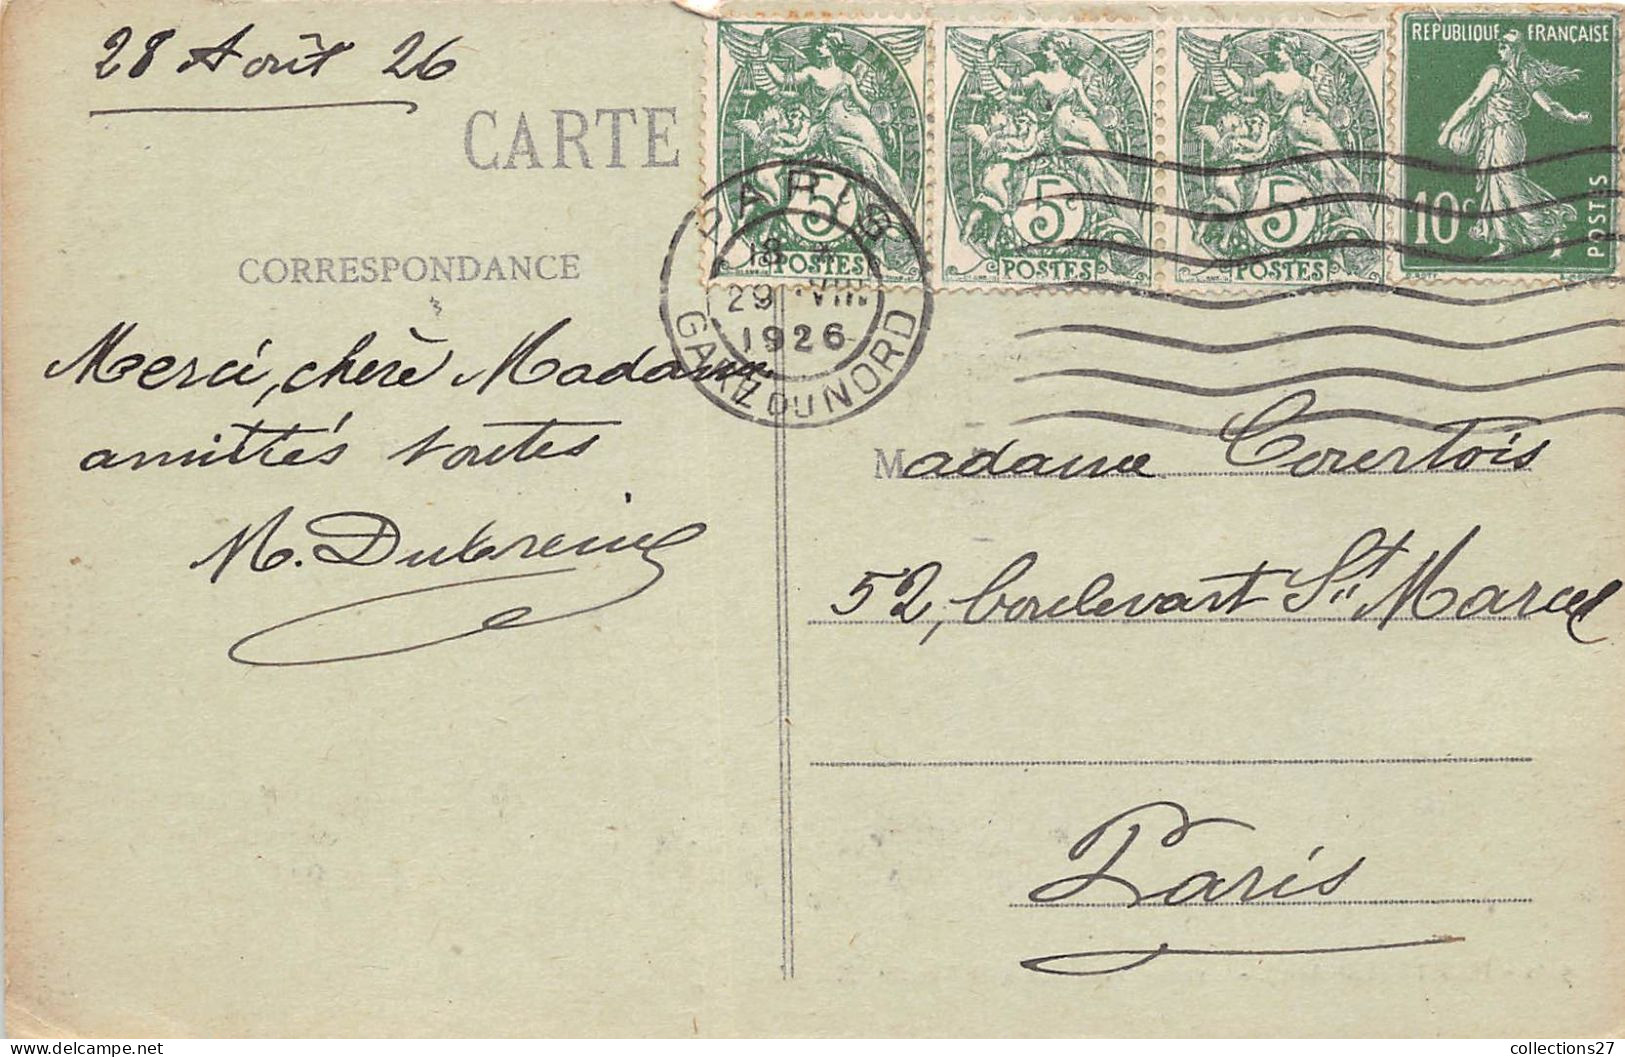 28 Août 26
CARTE
CORRESPONDANCE
Merci, chère Madame
amitiés toutes
M. Dubreuil
5
POSTES
5
POSTES
5
POSTES
RÉPUBLIQUE FRANÇAISE
10c
POSTES
PARIS
18
29 VIII
1926
GARE DU NORD
Madame Courtois
52, boulevart St Marcel
Paris
collections27